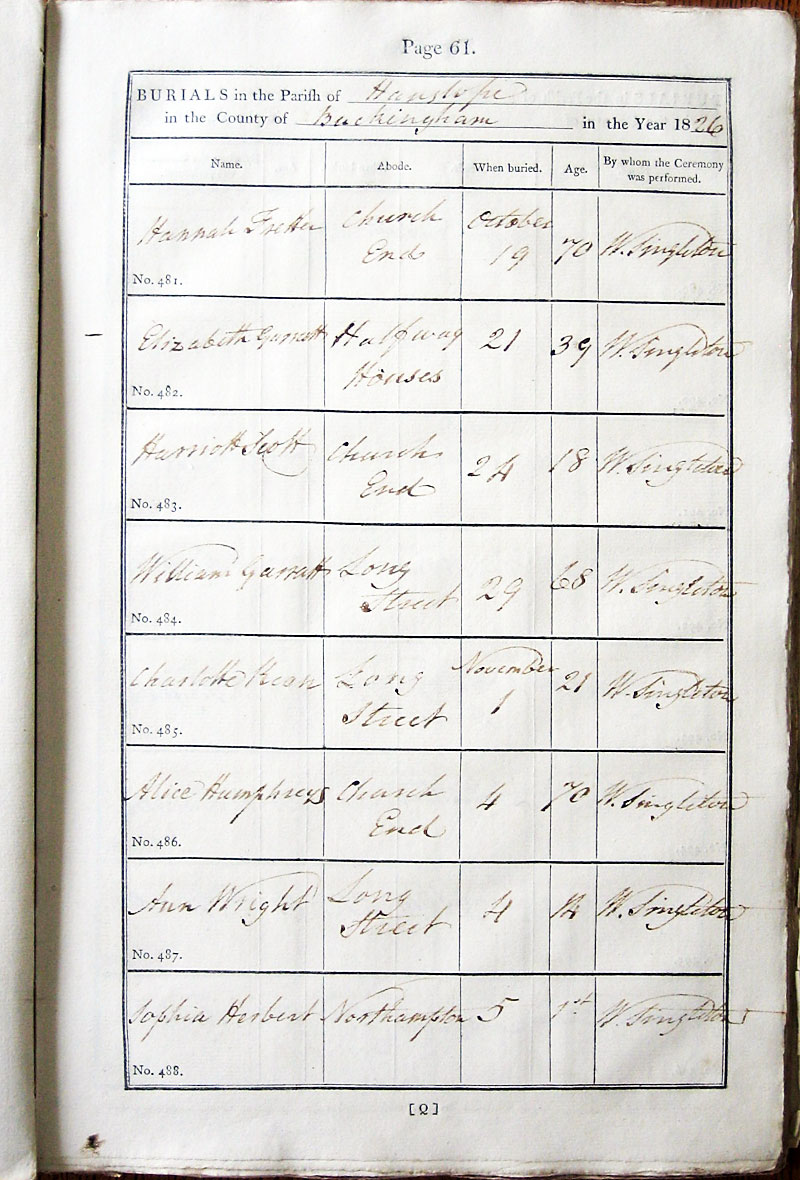 Page 61.
BURIALS in the Parish of Hanslope
in the County of Buckingham in the Year 1826
Name. Abode. When buried. Age. By whom the Ceremony was performed.
Hannah Church End October 19 70 W. Singleton
No. 481.
Elizabeth Garratt Halfway Houses 21 39 W. Singleton
No. 482.
Harriott Scott Church End 24 18 W. Singleton
No. 483.
William Garratt Long Street 29 68 W. Singleton
No. 484.
Charlotte Long Street November 1 21 W. Singleton
No. 485.
Alice Humphreys Church End 4 70 W. Singleton
No. 486.
Ann Wright Long Street 4 14 W. Singleton
No. 487.
Sophia Herbert Northampton 5 W. Singleton
No. 488.
[ 2 ]